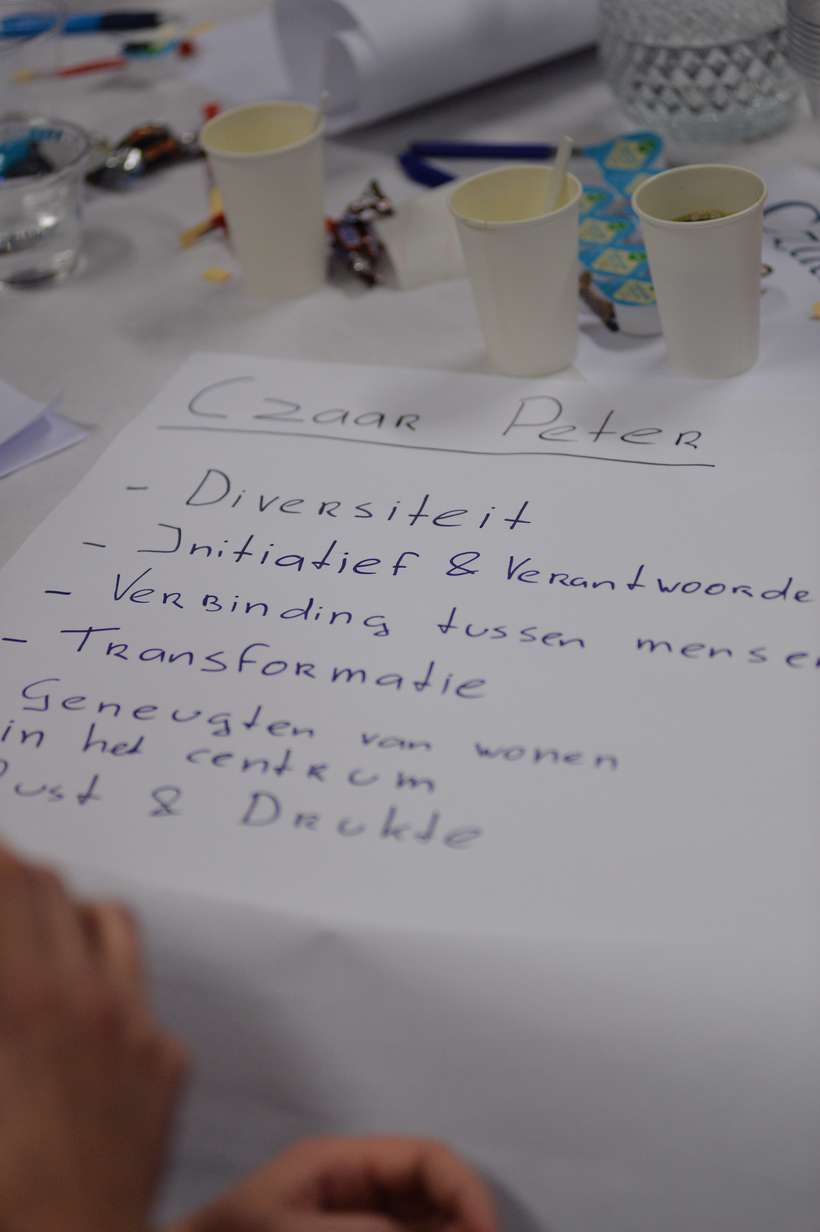 Czaar Peter
- Diversiteit
- Initiatief & Verantwoorde
- Verbinding tussen mensen
- Transformatie
Geneugten van wonen
in het centrum
Rust & Drukte